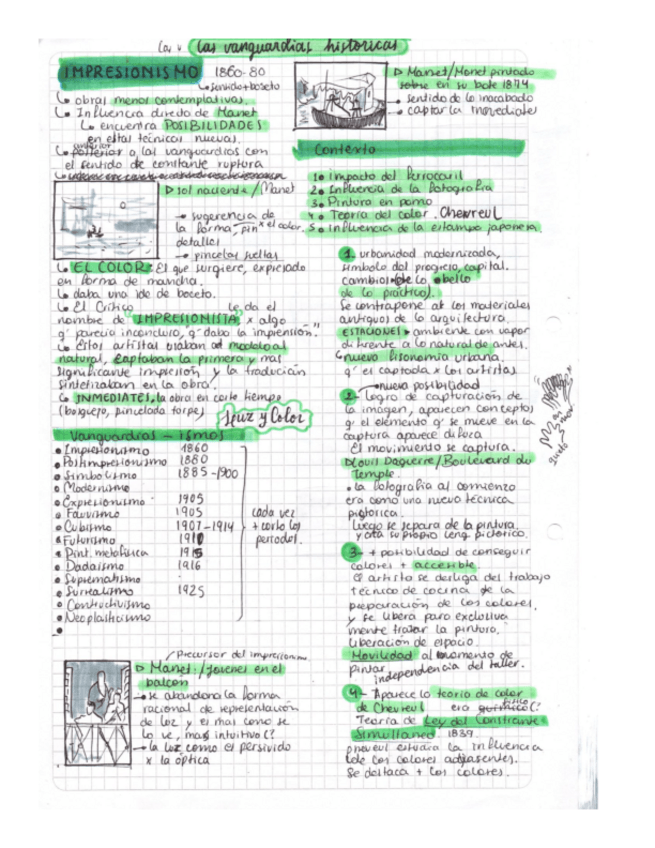 Las v Las vanguardias históricas
IMPRESIONISMO 1860-80
↳ sentido+boceto
↳ obras menos contemplativas.
↳ Influencia directa de Manet
↳ encuentra POSIBILIDADES
en estas técnicas nuevas.
↳ posterior anterior a las vanguardias con
el sentido de constante ruptura
▷ sol naciente/Manet
→ sugerencia de
la forma, sin x el color.
detalles
→ pinceladas sueltas
↳ EL COLOR: El que surgiere, expresado
en forma de mancha.
↳ daba una ide de boceto.
↳ El Crítico le da el
nombre de IMPRESIONISTA x algo
q' parecía inconcluso, q' daba la impresión."
↳ Estos artistas usaban al modelo al
natural, captaban la primera y mas
significante impresión y la traducción
sintetizaban en la obra.
↳ INMEDIATES, la obra en corto tiempo
(bosquejo, pincelada torpe)
Luz y Color
Vanguardias - ismos
• Impresionismo 1860
• Postimpresionismo 1880
• Simbolismo 1885-1900
• Modernismo
• Expresionismo 1905
• Fauvismo 1905
• Cubismo 1907-1914
• Futurismo 1910
• Pint. metafísica 1915
• Dadaísmo 1916
• Suprematismo
• Surrealismo 1925
• Constructivismo
• Neoplasticismo
cada vez
+ corto los
periodos.
/Precursor del impresionismo
▷ Manet: /jovenes en el
balcón
→ se abandona la forma
racional de representación
de luz y es mas como se
lo ve, mas intuitivo(?
→ la luz como es persivido
x la óptica
▷ Manet/Monet pintado
sobre en su bote 1874
→ sentido de lo inacabado
→ captar la inmediates
Contexto
1• Impacto del ferrocaril
2• Influencia de la fotografía
3• Pintura en pomo
4• Teoría del color. Chevreul
5• Influencia de la estampa japonesa.
1- urbanidad modernizada,
símbolo del progreso, capital.
cambios (de lo bello
de lo práctico).
Se contrapone at los materiales
antiguos de la arquitectura.
ESTACIONES → ambiente con vapor
diferente a lo natural de antes.
↳ nueva fisonomía urbana.
q' es captada x los artistas.
→ nueva posibilidad
2- logro de capturación de
la imagen, aparecen conceptos
q' el elemento q' se mueve en la
captura aparece difusa
El movimiento se captura.
▷ Louis Daguerre/Boulevard du
Temple.
• la fotografía al comienzo
era como una nueva técnica
pictórica.
Luego se separa de la pintura,
y crea su propio leng. pictórico.
3- + posibilidad de conseguir
colores + accesible.
El artista se desliga del trabajo
técnico de cocina de la
preparación de los colores.
y se libera para exclusiva
mente trabar la pintura.
Liberación de espacio.
Movilidad al momento de
pintar. independencia del taller.
4- Aparece la teoría de color
de Chevreul era químico físico (?
Teoría de Ley del Constraste
Simultaneo 1839.
preveul estudia la influencia
de los colores adjasentes.
Se destaca + los colores.